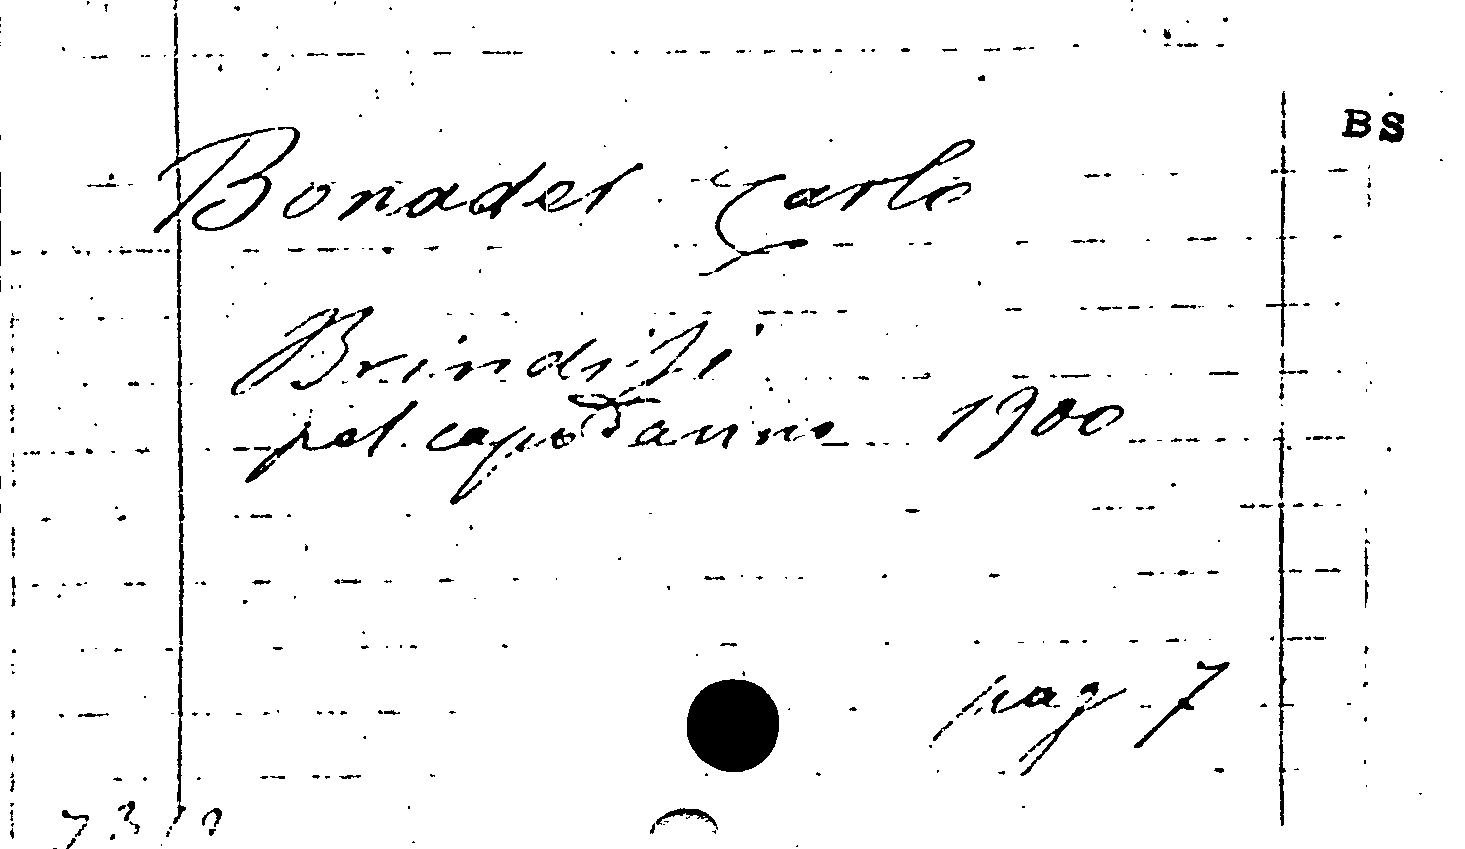 BS
Bonadei Carlo
Brindisi
pel capodanno 1900
pag 7